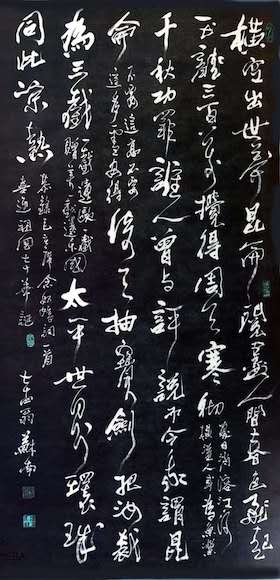 横空出世莽昆仑阅尽人间春色飞起
玉龙三百万搅得周天寒彻
夏日消溶江河
横溢人或为鱼鳖
千秋功罪谁人曾与评说而今我谓昆
仑
不要这高不要
这多雪安得
倚天抽宝剑把汝裁
为三截
一截遗欧一截
赠美一截还东国
太平世界环球
同此凉热
恭录毛主席念奴娇词一首
喜迎祖国七十华诞
翁